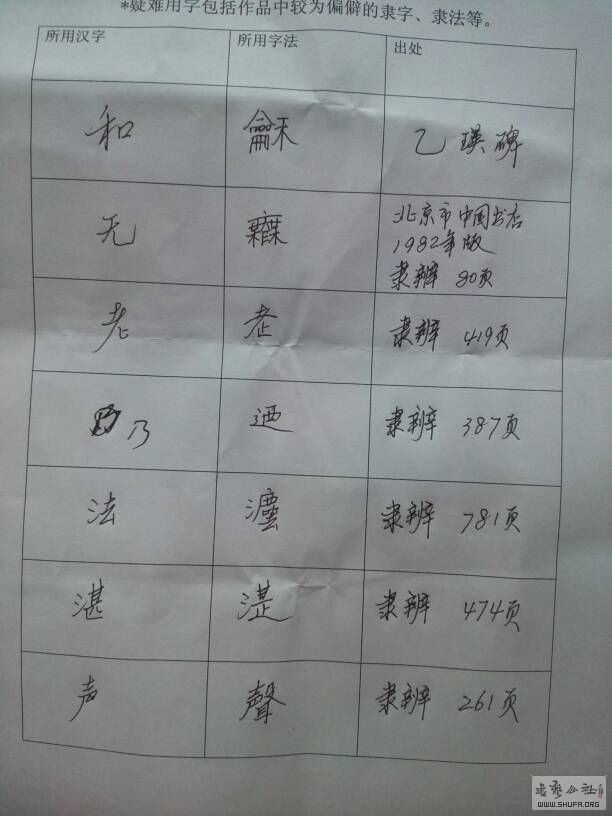 *疑难用字包括作品中较为偏僻的隶字、隶法等。
所用汉字 所用字法 出处
和 龢 乙瑛碑
无 北京市中国书店
1982年版
隶辨 80页
老 老 隶辨 419页
乃 迺 隶辨 387页
法 灋 隶辨 781页
湛 隶辨 474页
声 聲 隶辨 261页
WWW.SHUFA.ORG